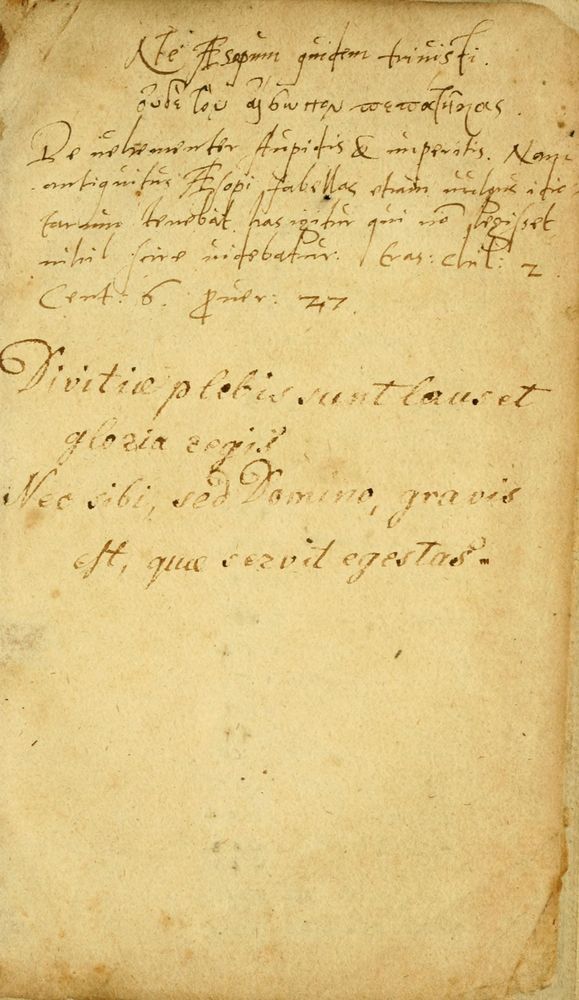 Ne Æsopum quidem trivisti.
οὐδὲ τὸν αἴσωπον πεπάτηκας.
De uehementer stupidis & imperitis. Nam
antiquitus Æsopi fabellas etiam uulgus idio-
tarum tenebat, has igitur qui nō legisset
nihil scire uidebatur. Eras: Chil: 2.
Cent: 6. Prouer: 27
Divitiæ plebis sunt laus et
gloria regis
Nec sibi, sed Domino, gravis
est, quæ servit egestas.